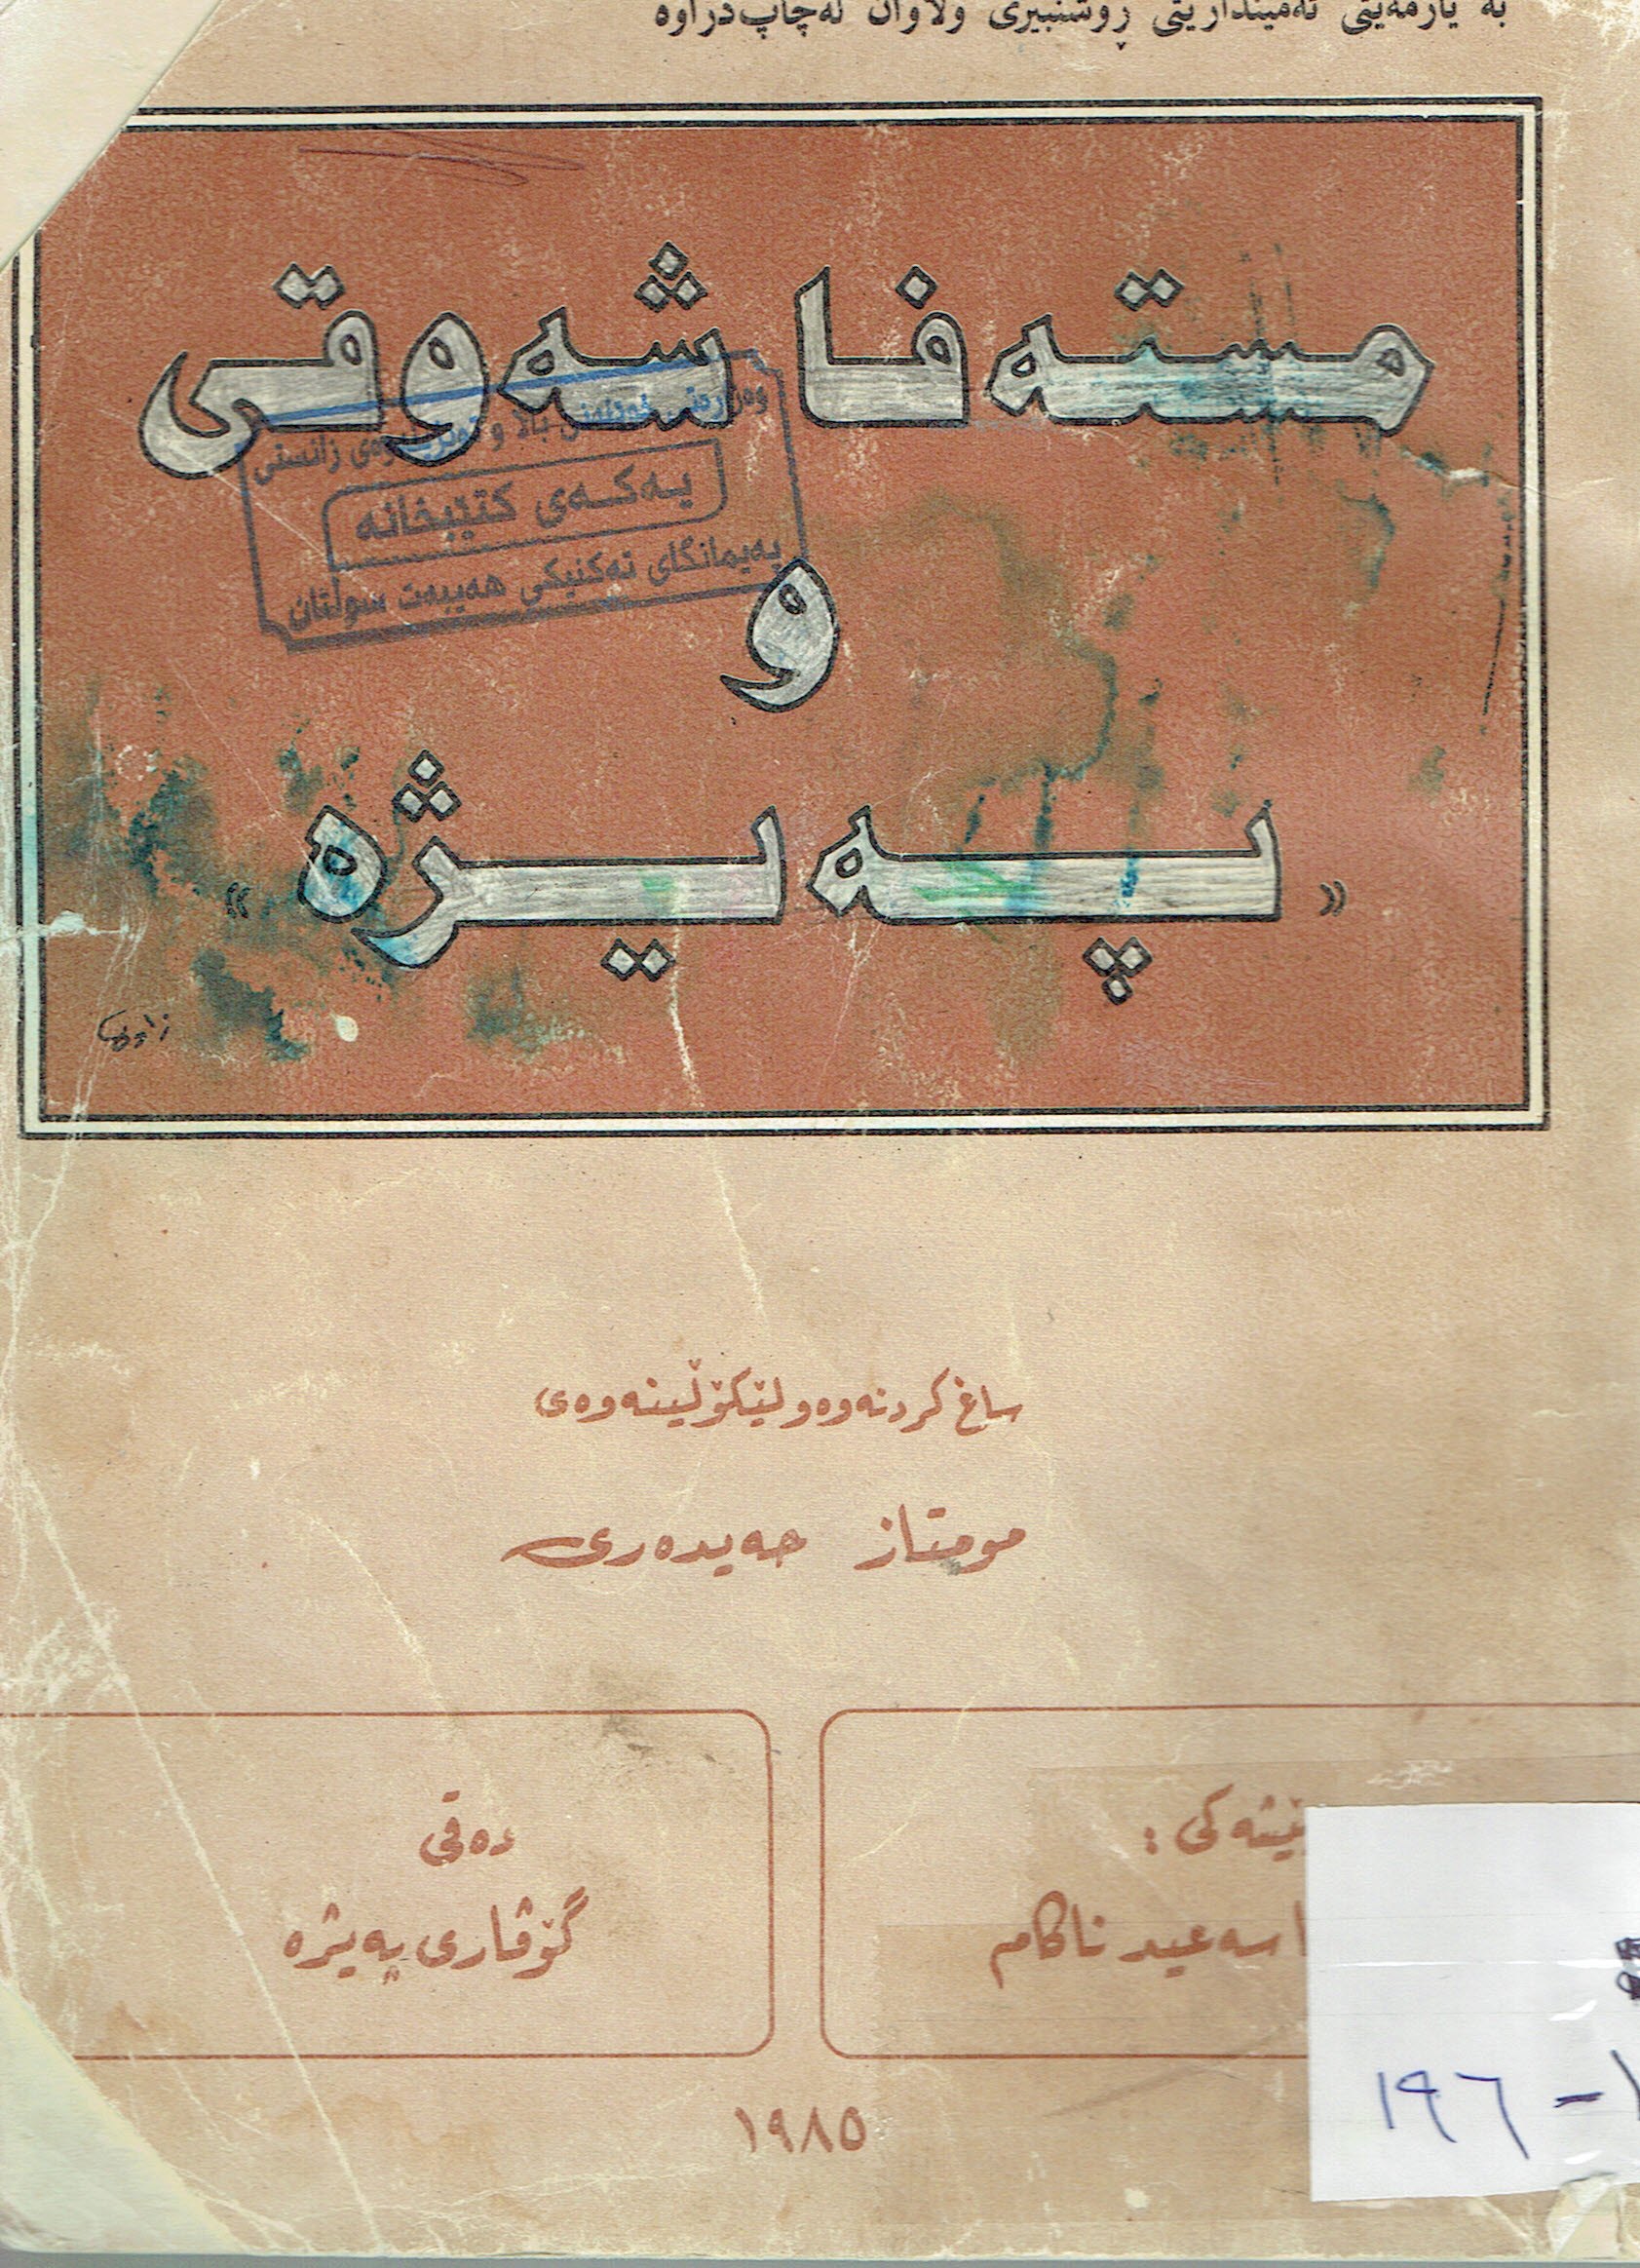 بە یارمەیتی ئەمینداریتی ڕۆشنبیری ولاوان لەچاپ‌دراوە
مستەفا شەوقی
وەزارەتی خوێندنی باڵا و توێژینەوەی زانستی
یەکەی کتێبخانە
پەیمانگای تەکنیکی هەیبەت سوڵتان
و
« پەیژە »
ساغ کردنەوە و لێکۆڵینەوەی
مومتاز حەیدەری
دەقی
گۆڤاری پەیژە
سەعید ناکام
١٩٨٥
١٩٦ - ١